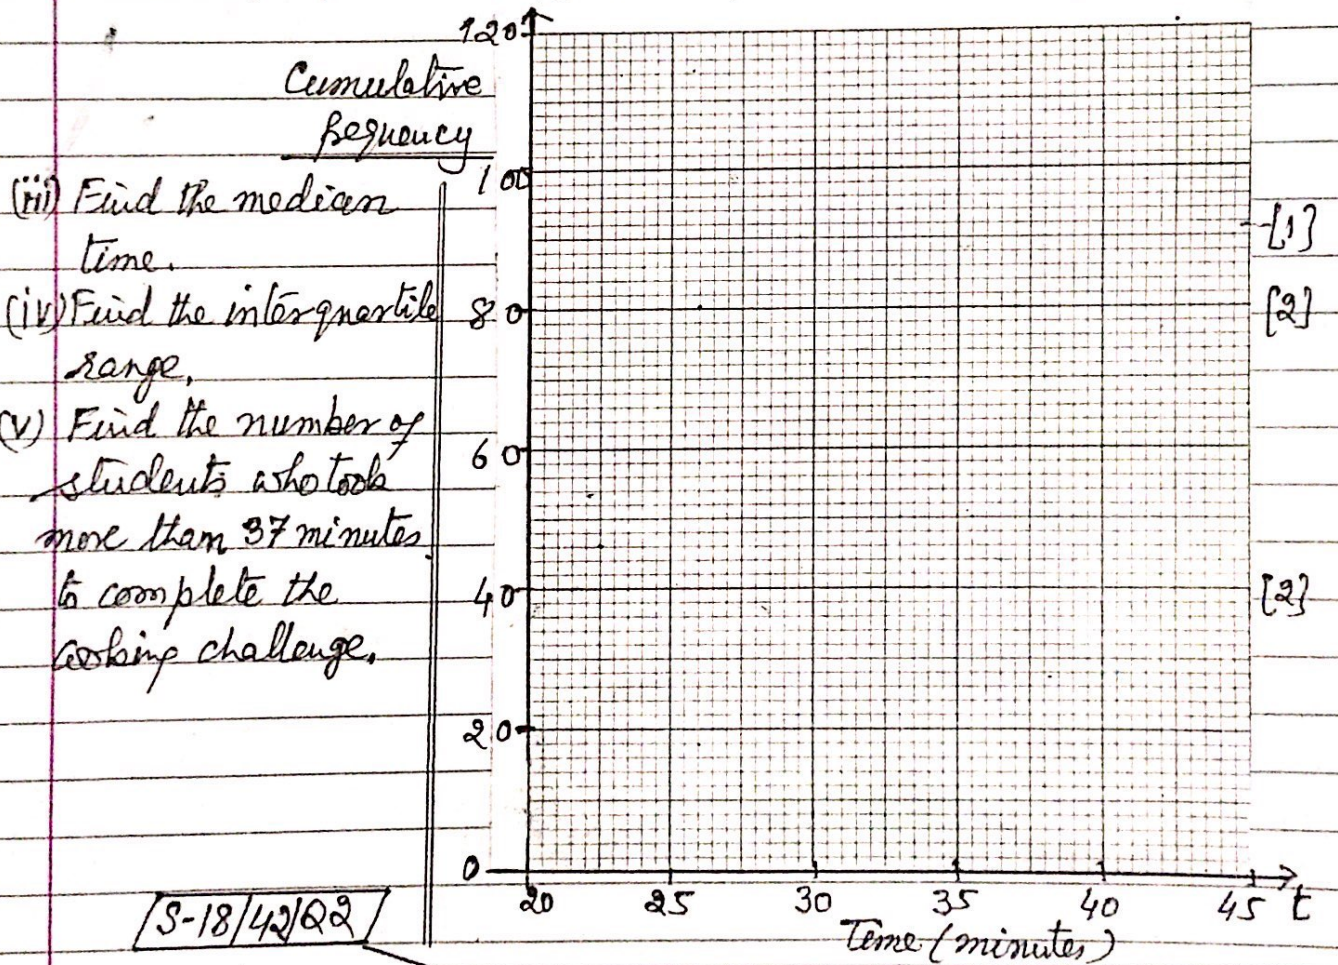 120
Cumulative
frequency
100
(iii) Find the median
time.
[1]
(iv) Find the interquartile
80
[2]
range.
(v) Find the number of
60
students who took
more than 37 minutes
to complete the
40
[2]
cooking challenge.
20
0
20 25 30 35 40 45 t
Time (minutes)
S-18/42/Q2